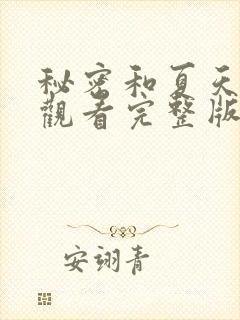 秘密和夏天
觀看完整版
安翊青